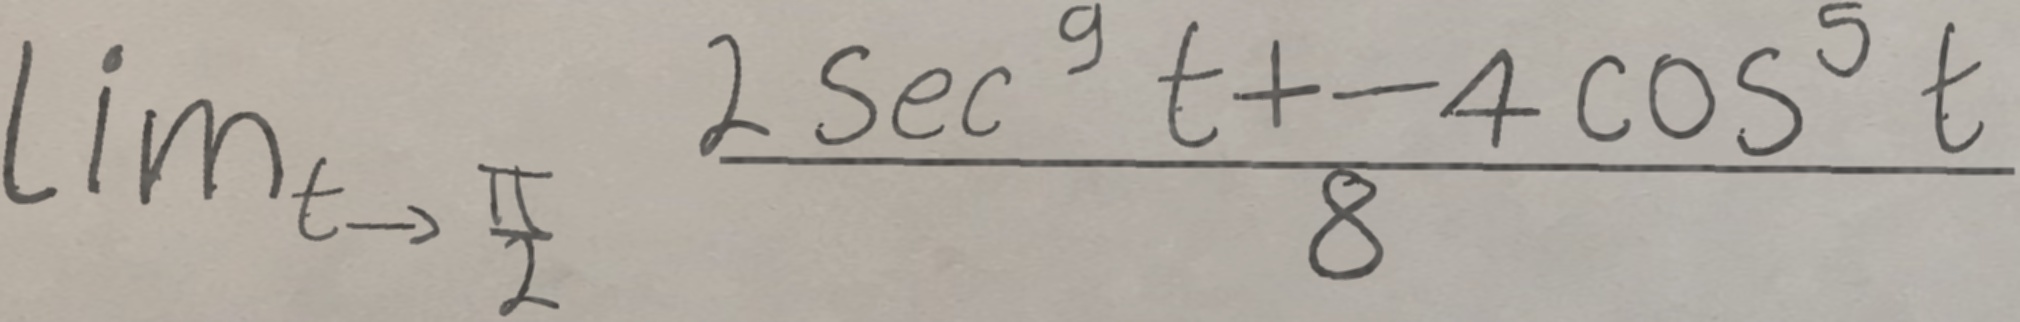 lim_{t→\frac{π}{2}} \frac{2 sec^9 t+-4 cos^5 t}{8}